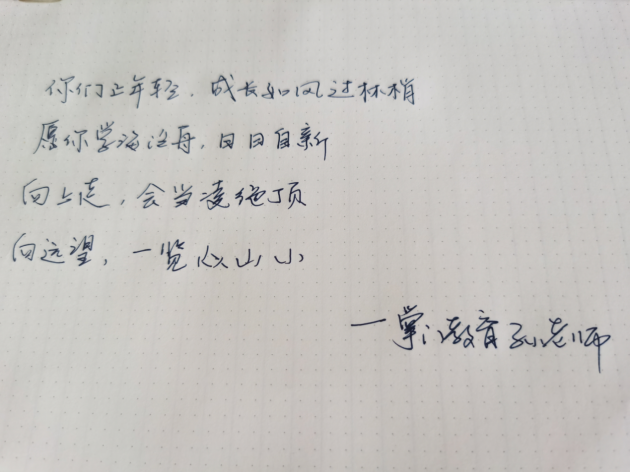 你们正年轻，成长如风过林梢
愿你学海泛舟，日日自新
向上走，会当凌绝顶
向远望，一览众山小
一掌门教育孙老师